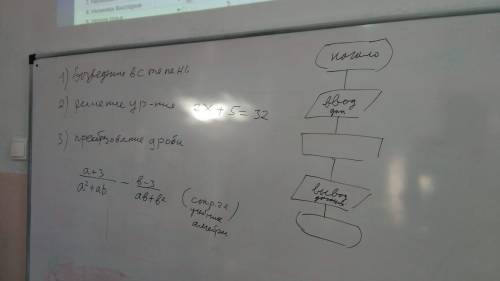 1) возведение в степень
2) решение ур-ния 2x + 5 = 32
3) преобразование дроби
a+3 / a²+ab − b-3 / ab+b²
(сокр.
учебник
алгебры)
начало
ввод
дан
вывод